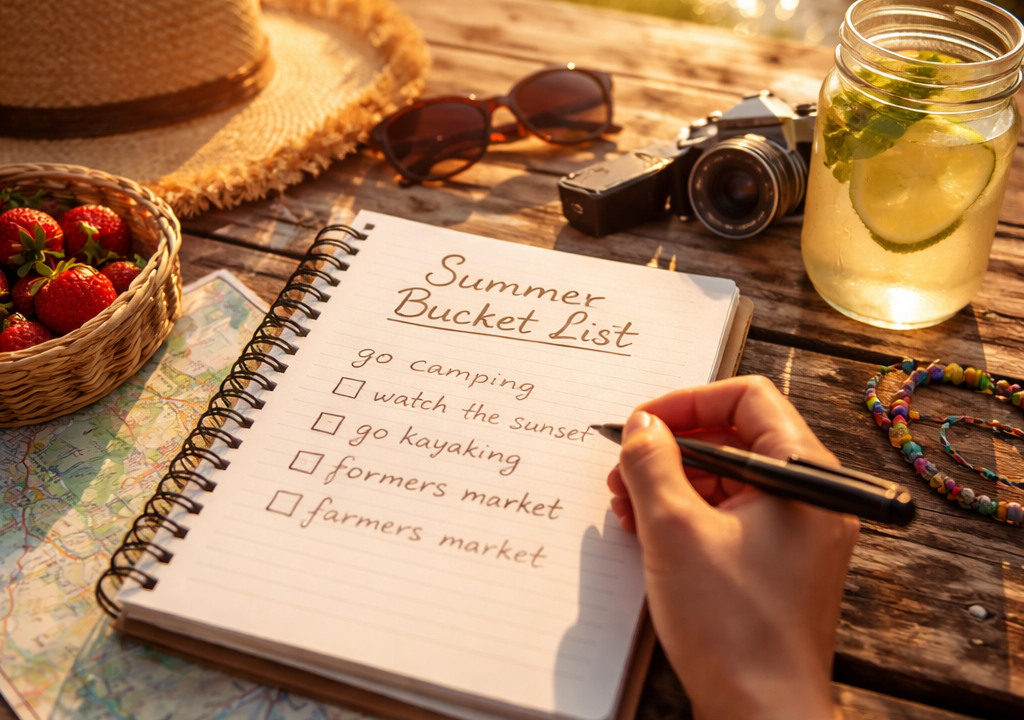 Summer
Bucket List
go camping
watch the sunset
go kayaking
formers market
farmers market